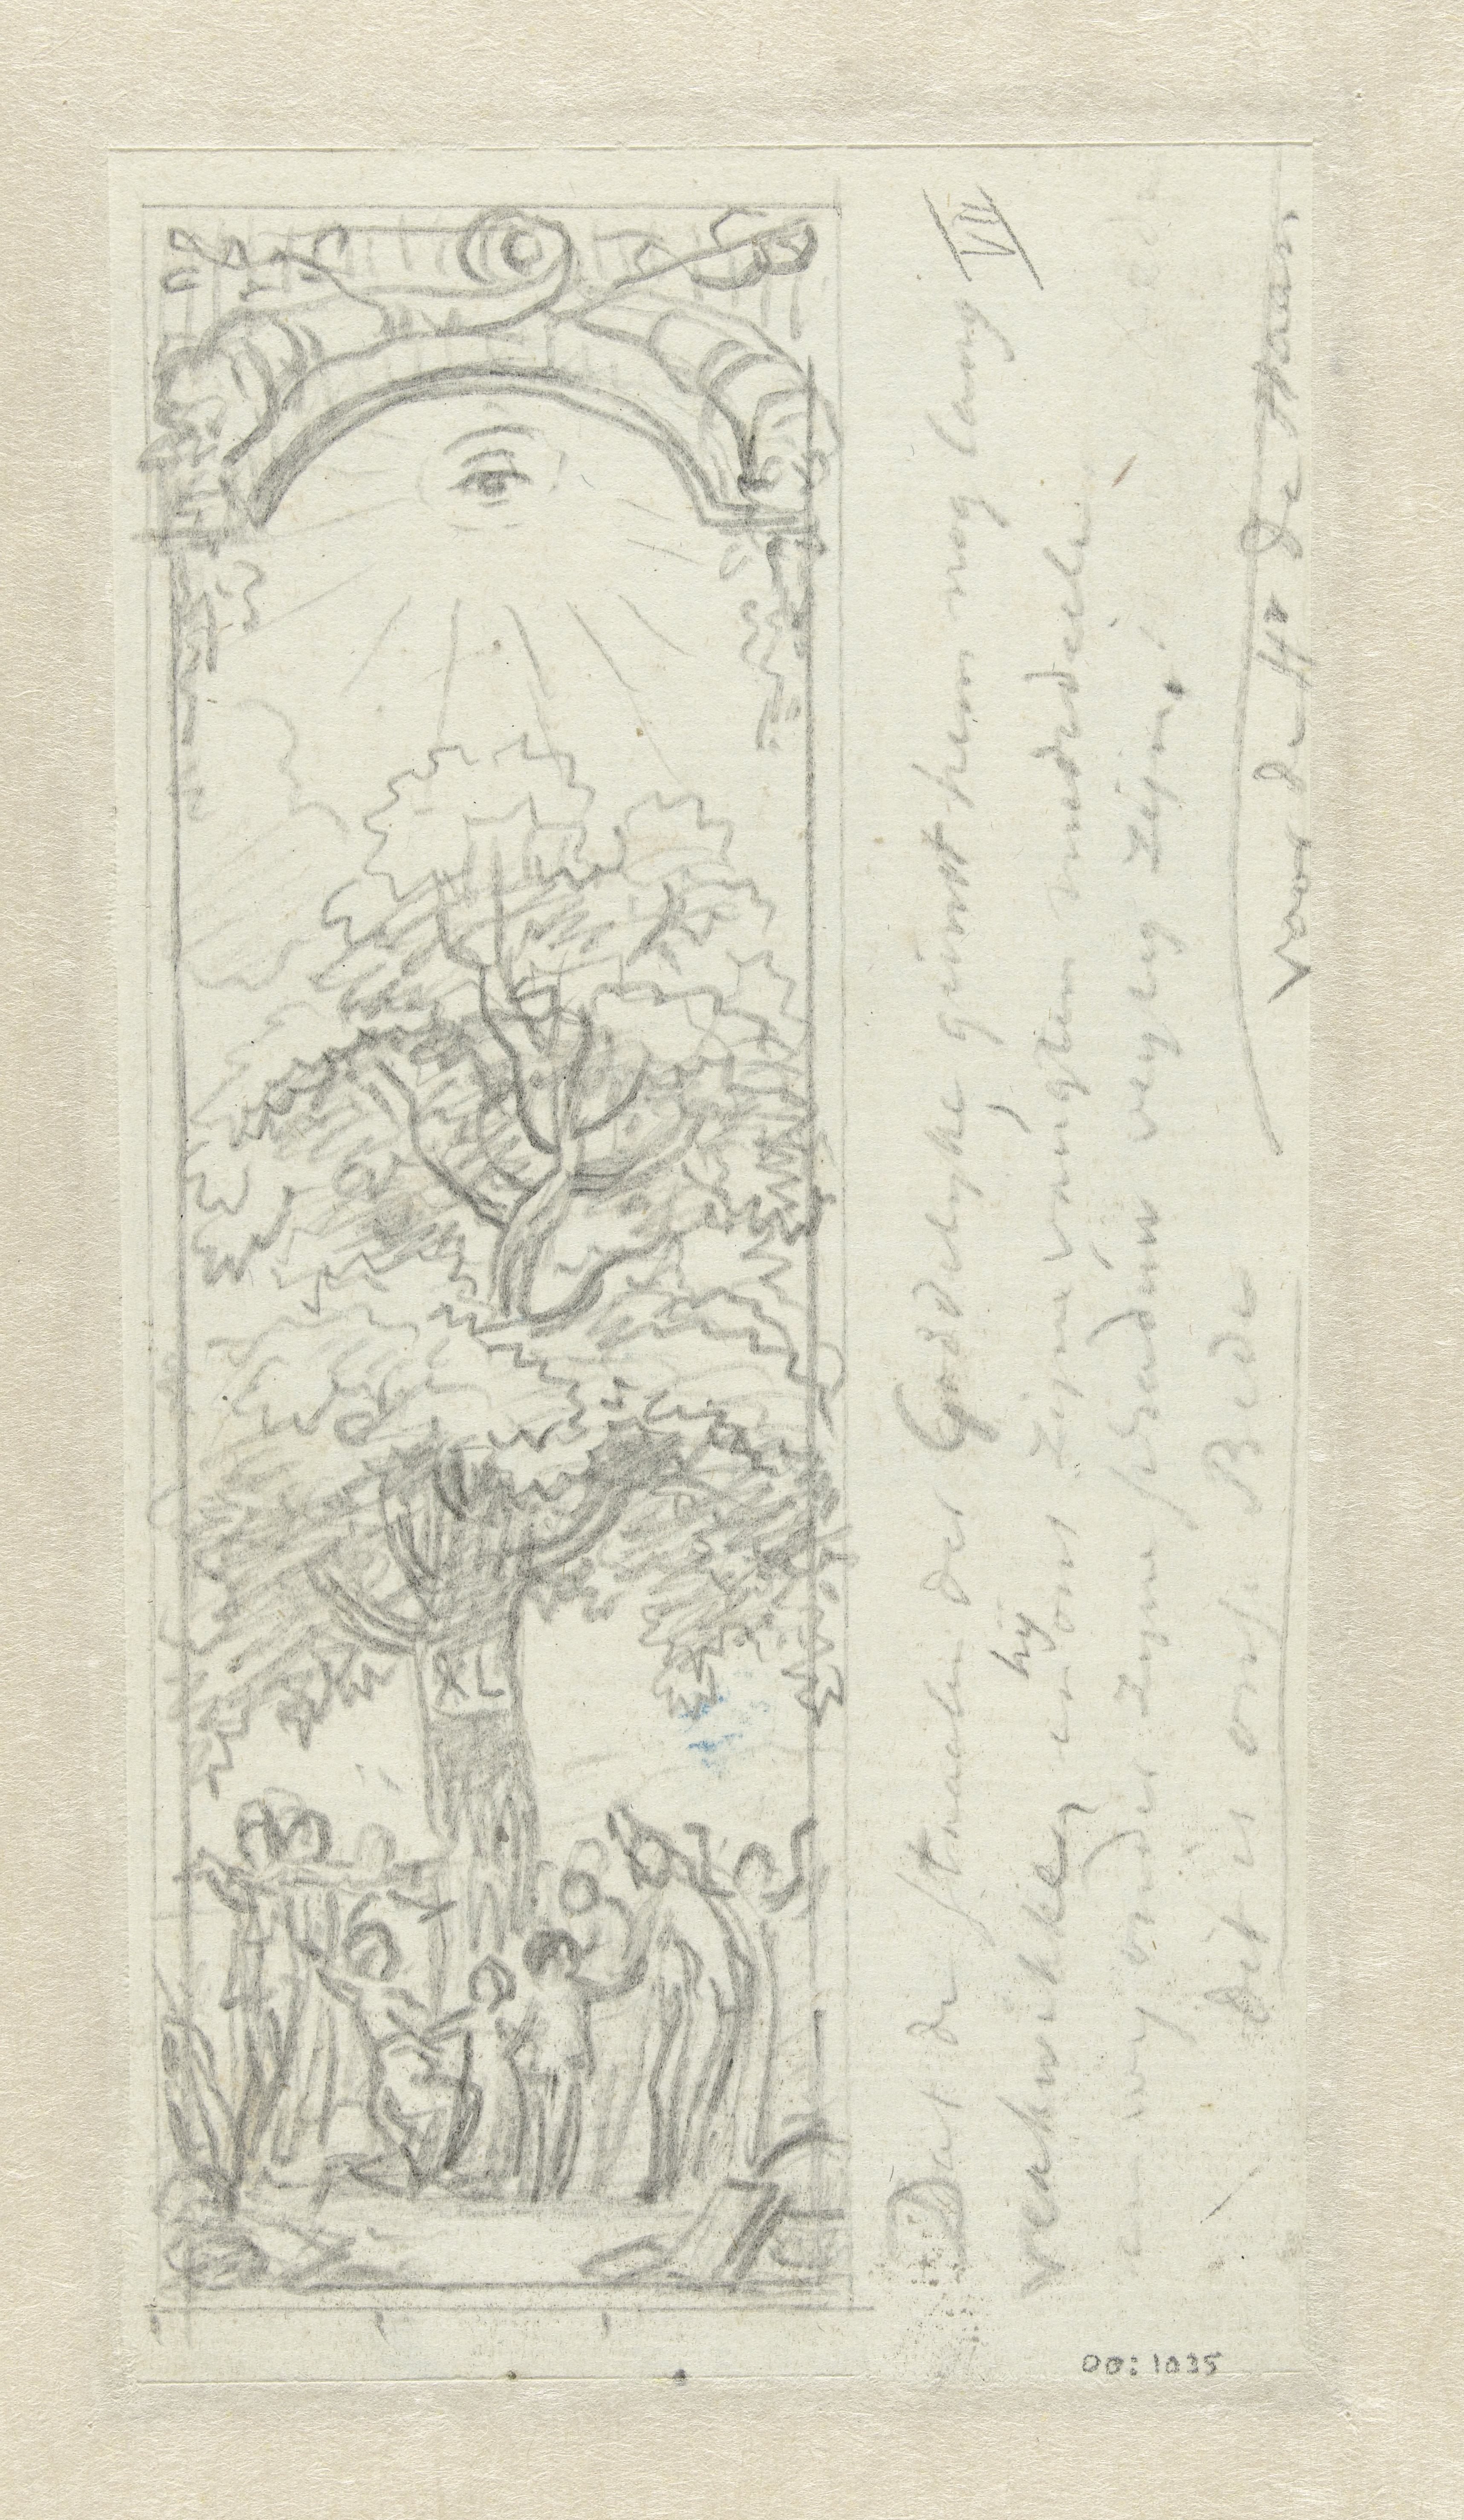 VII
Dat de straalen der Goddelyke gunst hem nog lang
verkwikken, hy
en ons zyne vrugten mededeele
en wy onder zyne schaduw veylig zyn!
dit is onse Bede
voor de Hr de Haan
XL
00:1035